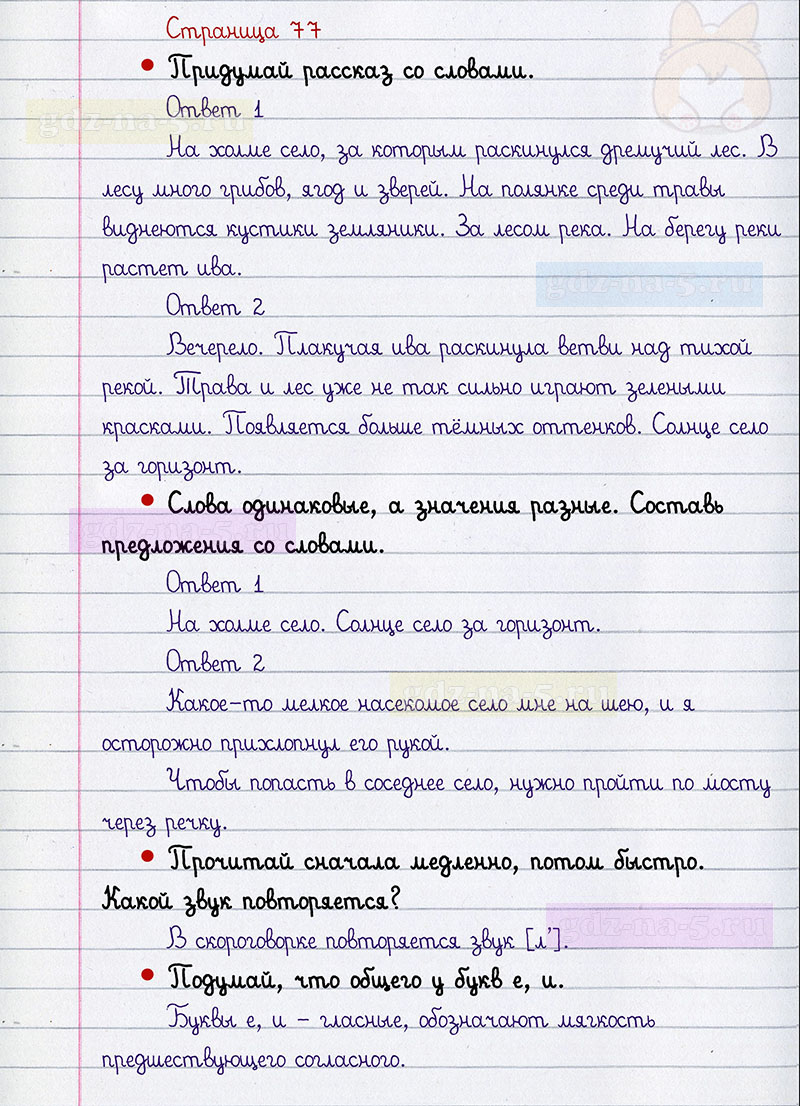 Страница 77
• Придумай рассказ со словами.
Ответ 1
gdz-na-5.ru
На холме село, за которым раскинулся дремучий лес. В
лесу много грибов, ягод и зверей. На полянке среди травы
виднеются кустики земляники. За лесом река. На берегу реки
растет ива.
gdz-na-5.ru
Ответ 2
Вечерело. Плакучая ива раскинула ветви над тихой
рекой. Трава и лес уже не так сильно играют зелеными
красками. Появляется больше тёмных оттенков. Солнце село
за горизонт.
• Слова одинаковые, а значения разные. Составь
gdz-na-5.ru
предложения со словами.
Ответ 1
На холме село. Солнце село за горизонт.
Ответ 2
gdz-na-5.ru
Какое-то мелкое насекомое село мне на шею, и я
осторожно прихлопнул его рукой.
Чтобы попасть в соседнее село, нужно пройти по мосту
через речку.
• Прочитай сначала медленно, потом быстро.
Какой звук повторяется?
gdz-na-5.ru
В скороговорке повторяется звук [л'].
• Подумай, что общего у букв е, и.
Буквы е, и – гласные, обозначают мягкость
предшествующего согласного.